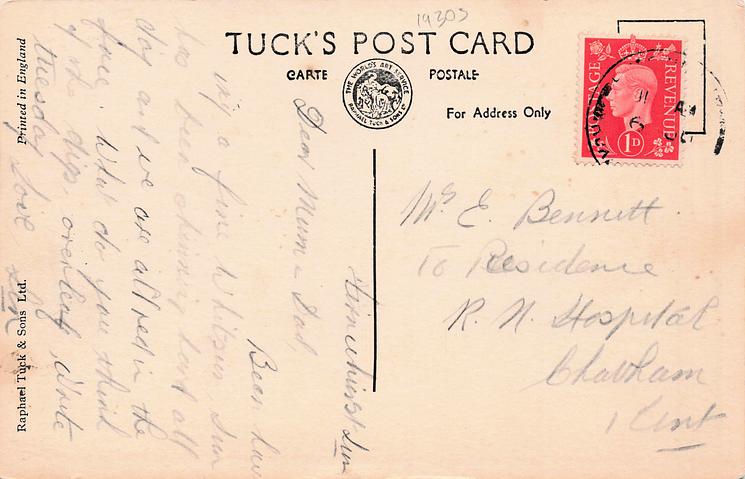 1930s
TUCK'S POST CARD
CARTE POSTALE
THE WORLD'S ART SERVICE
RAPHAEL TUCK & SONS LTD
For Address Only
POSTAGE REVENUE
1D
Printed in England
Raphael Tuck & Sons Ltd.
Sun
Dear Mum & Dad,
Been hav
ing a fine Whitsun, Sun
has been shining hard all
day and we are all red in the
face. What do you think
of the digs overleaf. Write
Tuesday Love
Mrs E. Bennett.
To Residence
R. N. Hospital
Chatham
Kent